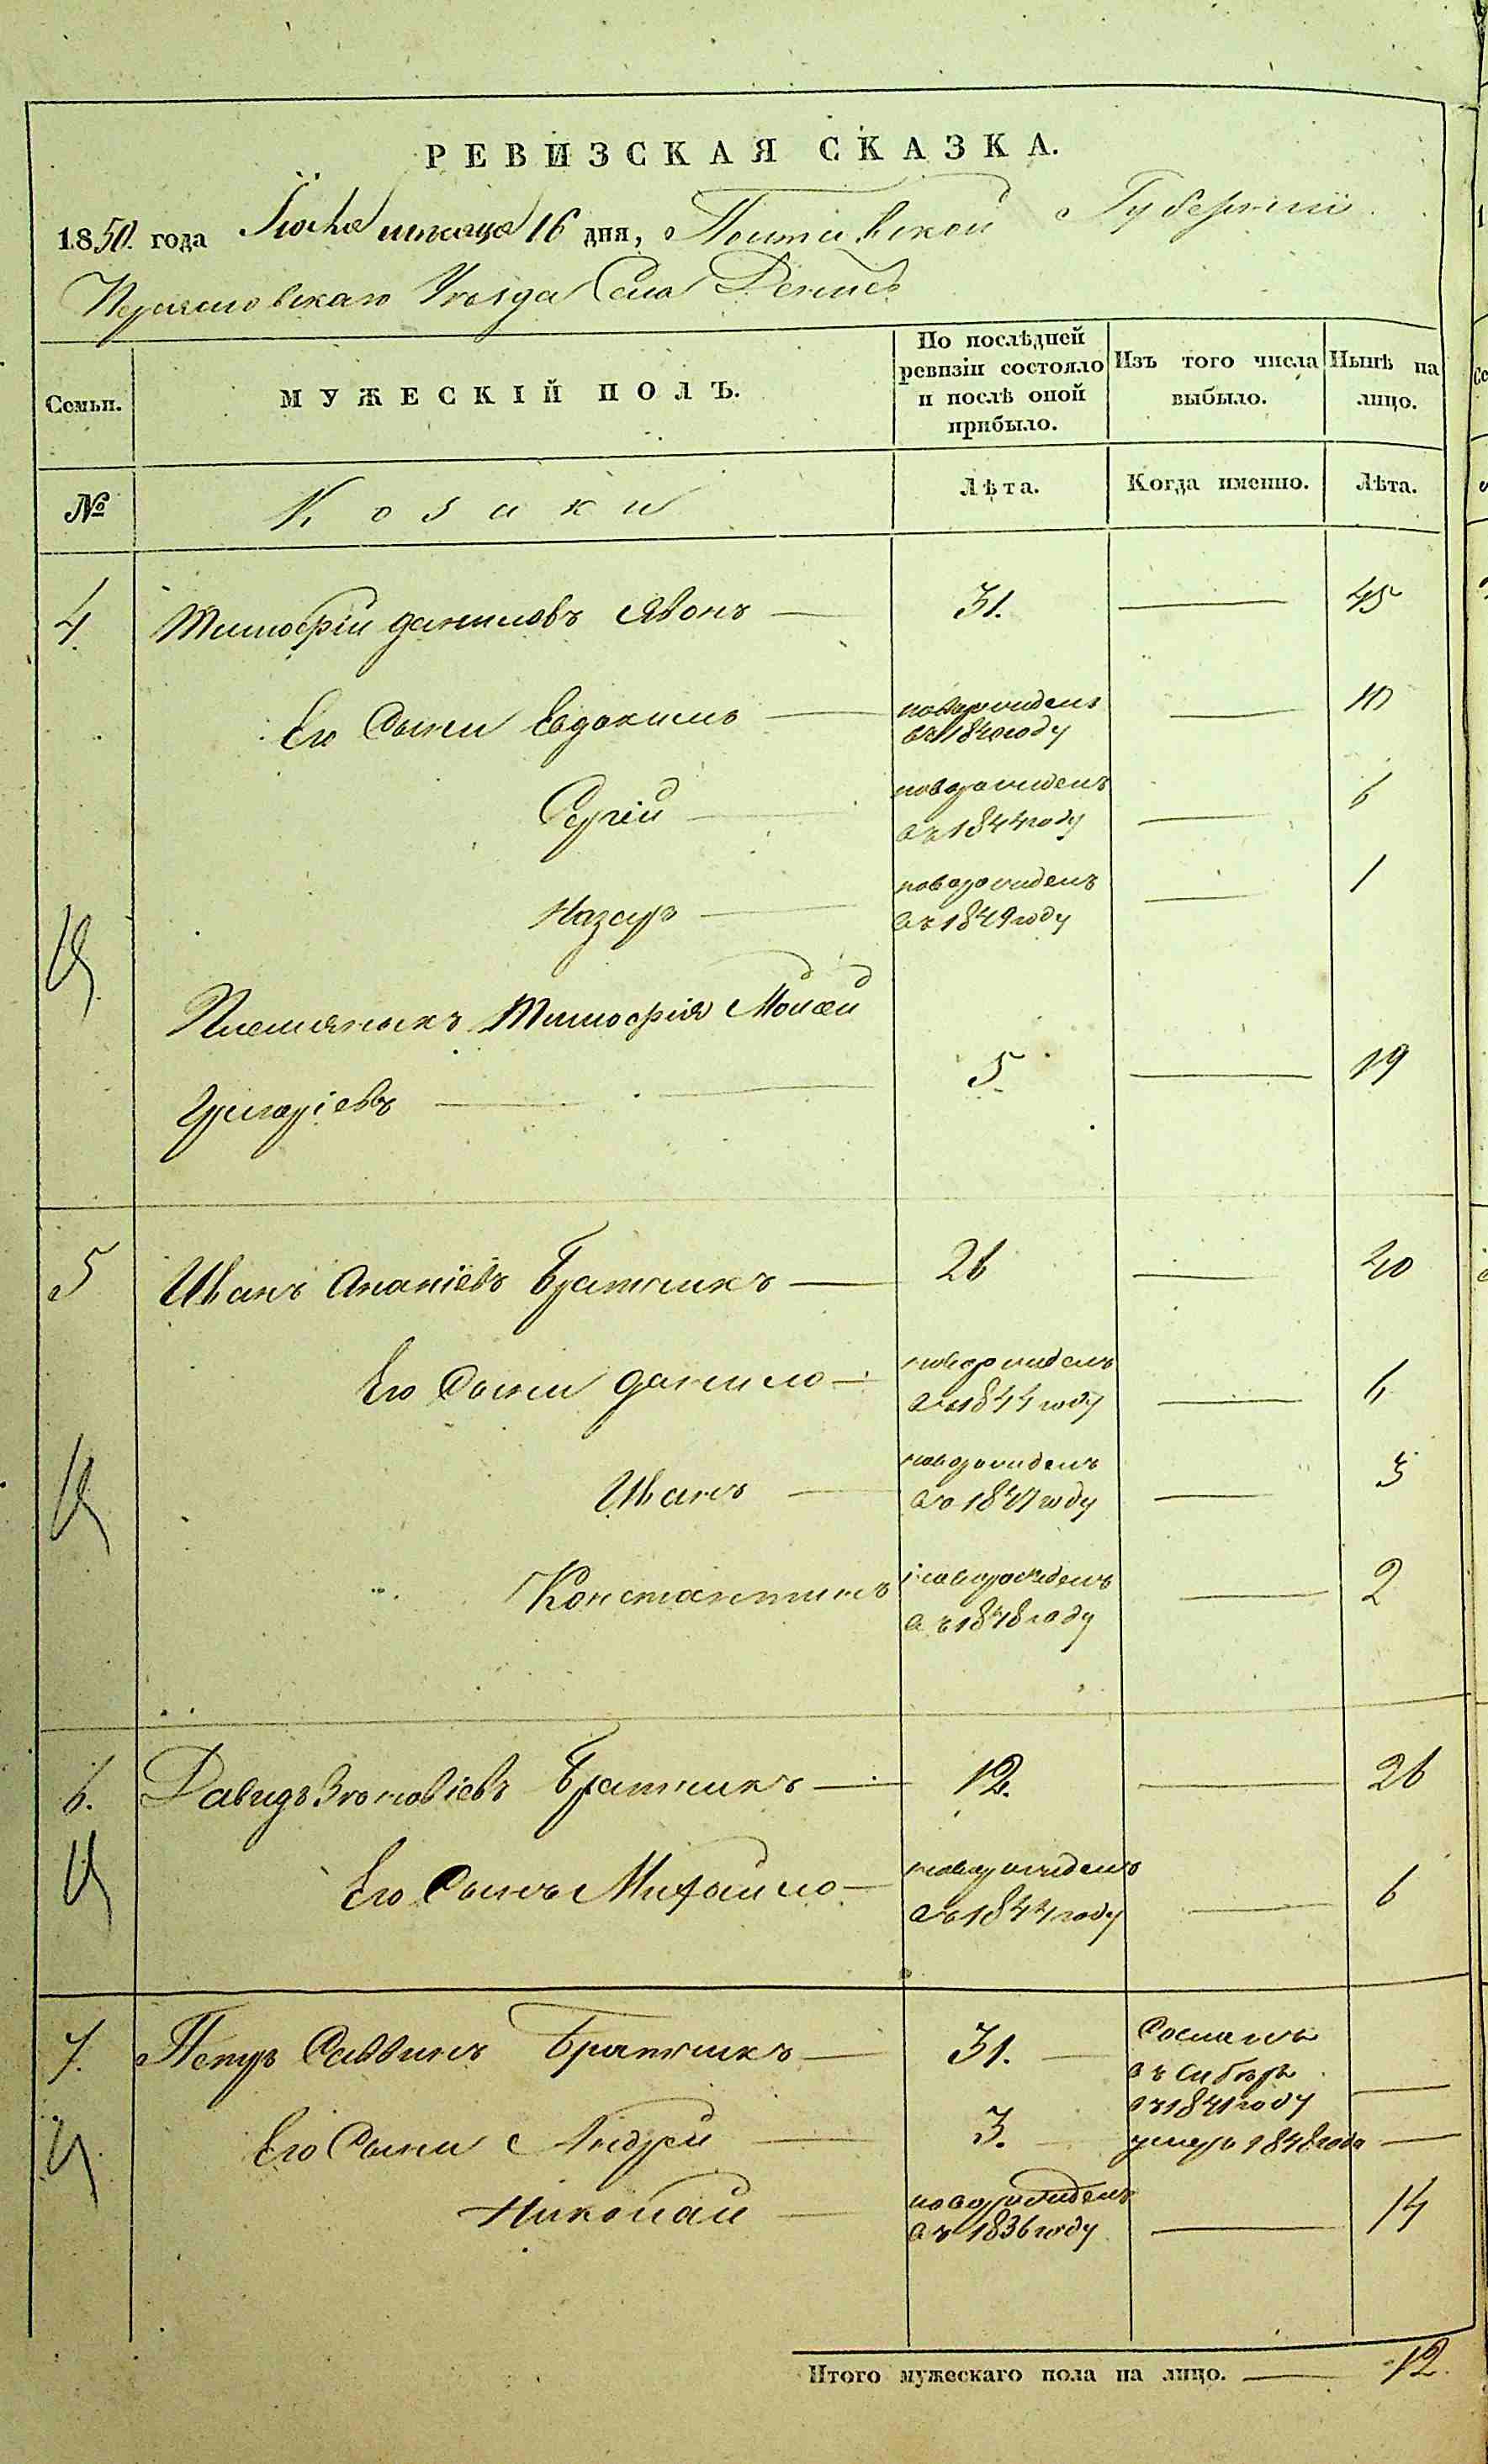 РЕВИЗСКАЯ СКАЗКА.
1850. года Іюня месяца 16 дня, Полтавской Губерніи
Переяславскаго Уезда Села Денисъ
Семьи.
МУЖЕСКІЙ ПОЛЪ.
По послѣдней ревизіи состояло и послѣ оной прибыло.
Изъ того числа выбыло.
Нынѣ на лицо.
№
Козаки
Лѣта.
Когда именно.
Лѣта.
4. Тимофій Даниловъ Явонъ — 31. — 45
Его Сыни Евдокимъ — новорожденъ въ 1840 году — 10
Сергій — новорожденъ въ 1844 году — 6
Назаръ — новорожденъ въ 1849 году — 1
Племяныкъ Тимофія Моисей
Григоріевъ — 5 — 19
5 Иванъ Ананіевъ Братчикъ — 26 — 40
Его Сыни Данило — новорожденъ въ 1844 году — 6
Иванъ — новорожденъ въ 1847 году — 3
Константинъ новорожденъ въ 1848 году — 2
6. Давидъ Братчикъ — 12. — 26
Его Сынъ Михайло — новорожденъ въ 1844 году — 6
7. Петръ Саввинъ Братчикъ — 31. — Сосланъ въ Сибирь въ 1841 году —
Его Сыни Андрей — 3. — умеръ 1848 года —
Николай — новорожденъ въ 1836 году — 14
Итого мужескаго пола на лицо. — 12.